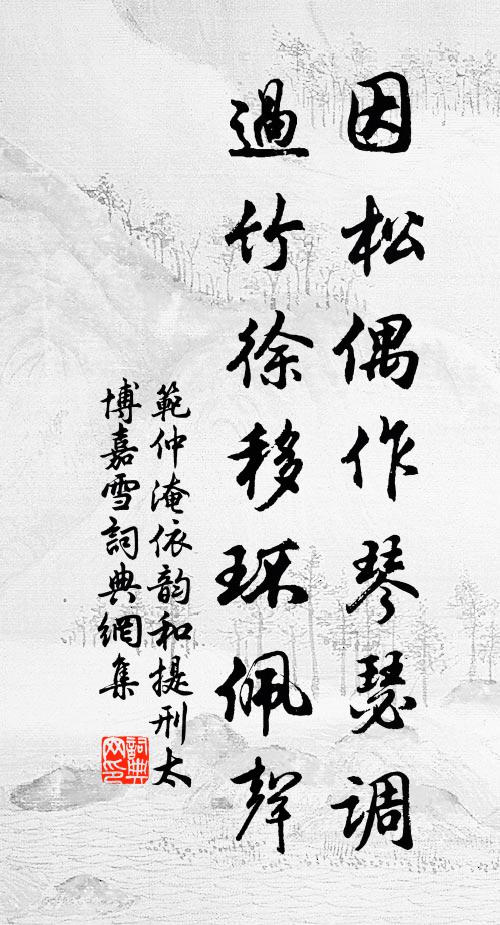 因松偶作琴瑟調
過竹徐移环佩聲
範仲淹依韵和提刑太
博嘉雪詞典網集
詞典网印